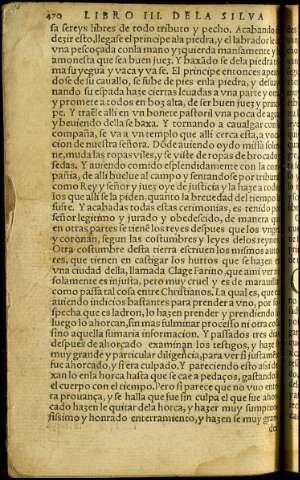 420 LIBRO III. DELA SILVA
sa sereys libres de todo tributo y pecho. Acabando de
dezir esto, llegase el principe ala piedra, y el labrador le da
vna pescoçada con la mano yzquierda mansamente y
amonesta que sea buen juez. Y baxado se dela piedra to-
ma su yegua y vaca y va se. El principe entonces apean
dose de su cauallo, se sube de pies enla piedra, y desuay
nando su espada haze ciertas leuadas a vna parte y otra
y promete a todos en boz alta, de ser buen juez y princi-
pe. Y traẽle alli en vn bonete pastoril vna poca de agua
y beuiendo della se baxa. Y tornando a caualgar con su
compaña, se va a vn templo que alli cerca esta, a voca-
cion de nuestra señora. Dõde auiendo oydo missa solem
ne, muda las ropas viles, y se viste de ropas de brocado y
sedas. Y auiendo comido esplendidamente con la com-
pañia, de alli buelue al campo y sentandose por tribunal
como Rey y señor y juez oye de justicia y la haze a todos
los que alli se la piden, quanto la breuedad del tiempo
sufre. Y acabadas todas estas cerimonias, es tenido por
señor legitimo y jurado y obedescido, de manera que
en otras partes se tienẽ los reyes despues que los vngen
y coronan, segun las costumbres y leyes delos reynos.
Otra costumbre desta tierra escriuen los mismos auto-
res, que tienen en castigar los hurtos que se hazen en
vna ciudad della, llamada Clage Farino, que a mi ver no
solamente es injusta, pero muy cruel y es de marauillar
como passa tal cosa entre Christianos. La qual es, que en
auiendo indicios bastantes para prender a vno, por sos-
pecha que es ladron, lo hazen prender y prendiendolo
luego lo ahorcan, sin mas fulminar processo ni otra cosa
sino aquella sumaria informacion. Y passados tres dias
despues de ahorcado examinan los testigos, y hazen
muy grande y particular diligencia, para ver si justamẽte
fue ahorcado, y si era culpado. Y pareciendo esto assi de
xan lo enla horca hasta que se cae a pedaços, gastandose
el cuerpo con el tiempo. Pero si parece que no vuo ente
ra prouança, y se halla que fue sin culpa el que fue ahor-
cado hazen le quitar dela horca, y hazer muy sumptuo-
sissimo y honrado enterramiento, y hazen se muy grandes